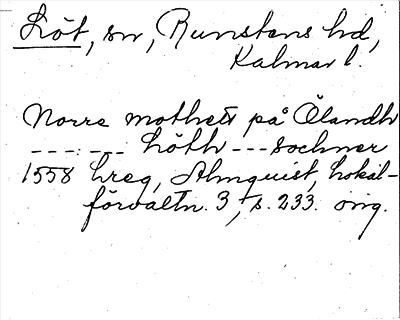 Löt, sn, Runstens hd,
Kalmar l.
Norre mothett på Ölandh
------- Löth --- sochner
1558 hreg, Almquist, Lokal-
förvaltn. 3, s. 233. orig.